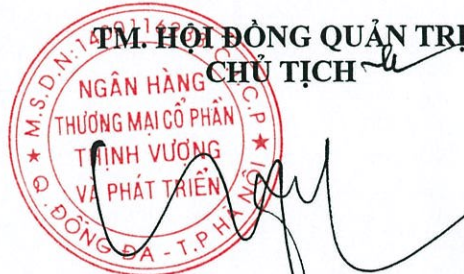 TM. HỘI ĐỒNG QUẢN TRỊ
CHỦ TỊCH
NGÂN HÀNG
THƯƠNG MẠI CỔ PHẦN
THỊNH VƯỢNG
VÀ PHÁT TRIỂN
Q. ĐỐNG ĐA - T.P HÀ NỘI